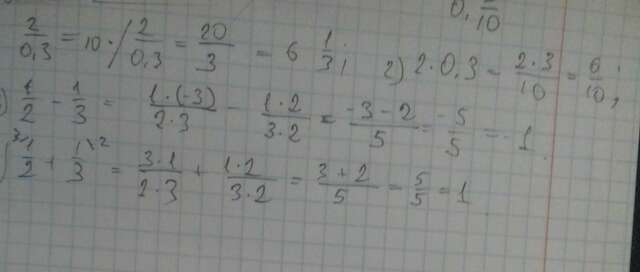 0, /10
2/0,3 = 10·/2/0,3 = 20/3 = 6 1/3; 2) 2·0,3 = 2·3/10 = 6/10;
) 1/2 - 1/3 = 1·(-3)/2·3 - 1·2/3·2 = -3-2/5 = -5/5 = -1
3\1/2 + 1\2/3 = 3·1/2·3 + 1·2/3·2 = 3+2/5 = 5/5 = 1